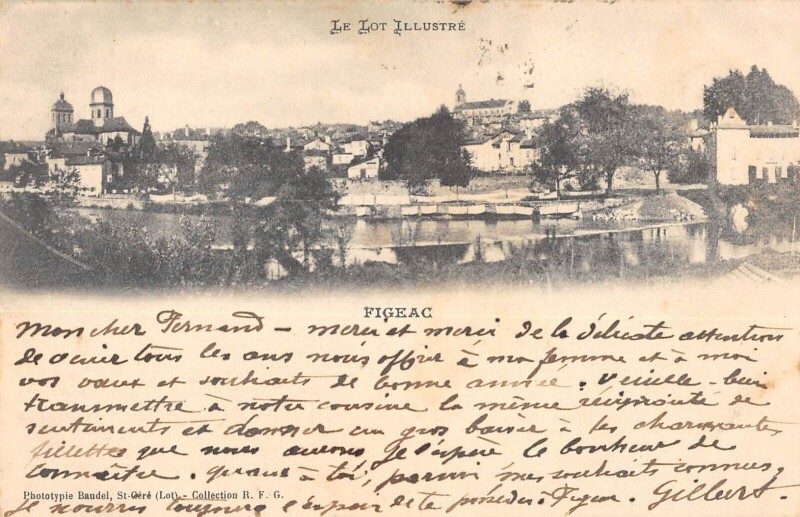 Le Lot Illustré
FIGEAC
Mon cher Fernand – merci et merci de la délicate attention
de venir tous les ans nous offrir à ma femme et à moi
vos vœux et souhaits de bonne année. Veuille bien
transmettre à notre cousine la même réciprocité de
sentiments et donner un gros baiser à tes charmantes
fillettes que nous aurons je l'espère le bonheur de
connaître. quant à toi, parmi mes souhaits connus,
Phototypie Baudel, St-Céré (Lot) - Collection R. F. G.
je nourris toujours l'espoir de te posséder à Figeac. Gilbert.